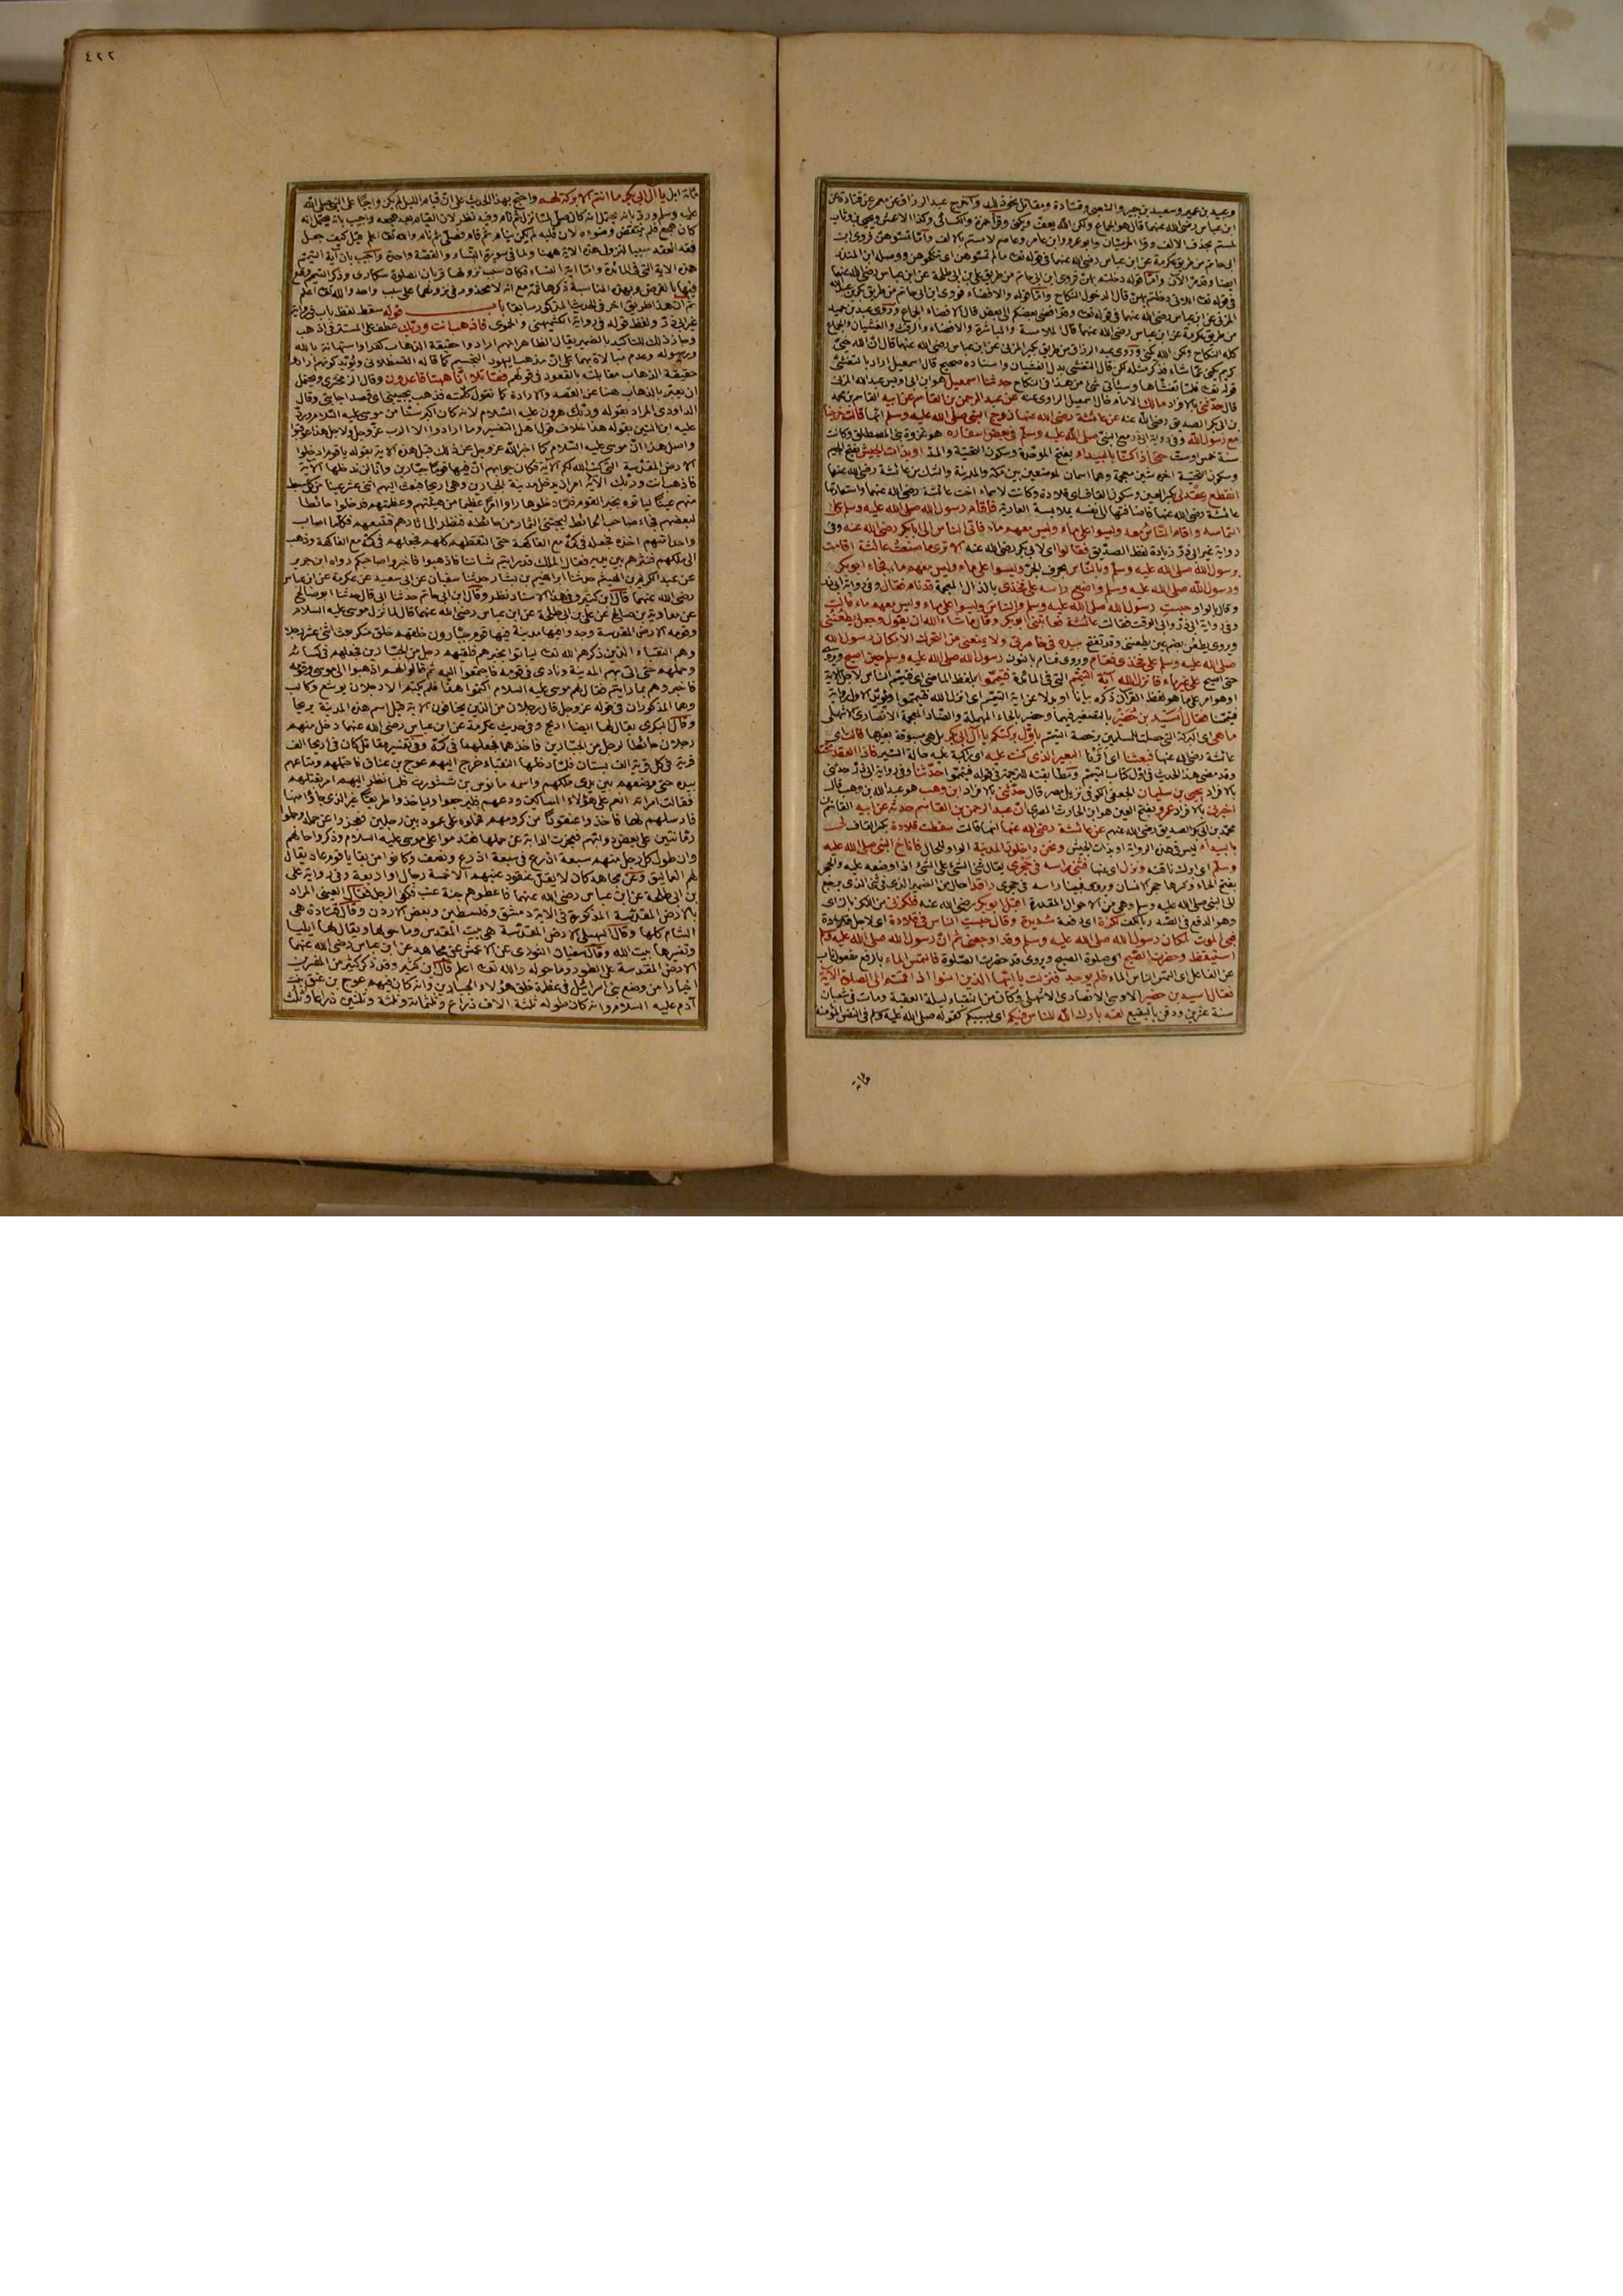 وعبيد بن عمير وسعيد بن جبير والشعبي وقتادة ومقاتل نحو ذلك وأخرج عبد الرزاق عن معمر عن قتادة عن
ابن عباس رضي الله عنهما قال هو الجماع ولكن الله يعف ويكنى وقرأ حمزة والكسائي وكذا الاعمش ويحيى بن وثاب
لمستم بحذف الالف وقرأ وابو عمرو وابن عامر وعاصم لامستم بالالف وأما تمسوهن فروى ابن
ابي حاتم من طريق عكرمة عن ابن عباس رضي الله عنهما في قوله تعالى ما لم تمسوهن اي تنكحوهن ووصله ابن المنذر
ايضا وقد مر الآن وأما قوله دخلتم بهن فروى ابن ابي حاتم من طريق علي بن ابي طلحة عن ابن عباس رضي الله عنهما
في قوله تعالى اللاتي دخلتم بهن قال الدخول النكاح واما قوله والافضاء فروى ابن ابي حاتم من طريق بكر بن عبد الله
المزني عن ابن عباس رضي الله عنهما في قوله تعالى وقد افضى بعضكم الى بعض قال الافضاء الجماع وروى عبد بن حميد
من طريق عكرمة عن ابن عباس رضي الله عنهما قال الملامسة والمباشرة والافضاء والرفث والغشيان والجماع
كله النكاح ولكن الله يكنى وروى عبد الرزاق من طريق بكير المزني عن ابن عباس رضي الله عنهما قال ان الله حيي
كريم يكني عما شاء فذكر مثله لكن قال التغشي بدل الغشيان واسناده صحيح قال اسمعيل اراد بالتغشي
قوله تعالى فلما تغشاها وسيأتي شيء من هذا في النكاح حدثنا اسمعيل هو ابن ابي اويس عبد الله المزني
قال حدثني بالافراد مالك الامام قال اسمعيل الراوي عنه عن عبد الرحمن بن القاسم عن ابيه القاسم بن محمد
بن ابي بكر الصديق رضي الله عنه عن عائشة رضي الله عنها زوج النبي صلى الله عليه وسلم انها قالت خرجنا
مع رسول الله وفي رواية ابي ذر مع النبي صلى الله عليه وسلم في بعض اسفاره هو غزوة بني المصطلق وكانت
سنة خمس او ست حتى اذا كنا بالبيداء بفتح الموحدة وسكون التحتية والمد او بذات الجيش بفتح الجيم
وسكون التحتية اخره شين معجمة وهما اسمان لموضعين بين مكة والمدينة والشك من عائشة رضي الله عنها
انقطع عقد لي بكسر العين وسكون القاف اي قلادة وكانت لاسماء اخت عائشة رضي الله عنهما واستعارتها
عائشة رضي الله عنها فاضافتها الى نفسه بملابسة العارية فاقام رسول الله صلى الله عليه وسلم على
التماسه واقام الناس معه وليسوا على ماء وليس معهم ماء فاتى الناس الى ابي بكر رضي الله عنه وفي
رواية غير ابي ذر زيادة لفظ الصديق فقالوا اي لابي بكر رضي الله عنه الا ترى ما صنعت عائشة اقامت
برسول الله صلى الله عليه وسلم وبالناس بحرف الجر وليسوا على ماء وليس معهم ماء فجاء ابو بكر
ورسول الله صلى الله عليه وسلم واضع راسه على فخذي بالذال المعجمة قد نام فقال وفي رواية ابي ذر
وقال بالواو حبست رسول الله صلى الله عليه وسلم والناس وليسوا على ماء وليس معهم ماء قالت
وفي رواية ابي ذر وابي الوقت فقالت عائشة فعاتبني ابو بكر وقال ما شاء الله ان يقول وجعل يطعنني
وروى يطعن بضم عين يطعنني وقد تفتح بيده في خاصرتي ولا يمنعني من التحرك الا مكان رسول الله
صلى الله عليه وسلم على فخذي فقام وروى فنام بالنون رسول الله صلى الله عليه وسلم حين اصبح وروي
حتى اصبح على غير ماء فانزل الله آية التيمم التي في المائدة فتيمموا بلفظ الماضي اي فتيمم الناس لاجل الآية
او هو امر على ما هو لفظ القرآن ذكره بيانا او بدلا عن آية التيمم اي انزل الله فتيمموا
فتيممنا فقال اسيد بن حضير بالتصغير فيهما وحضير بالحاء المهملة والضاد المعجمة الانصاري الاشهلي
ما هي اي البركة التي حصلت للمسلمين برخصة التيمم باول بركتكم يا آل ابي بكر بل هي مسبوقة بغيرها قالت اي
عائشة رضي الله عنها فبعثنا اي اثرنا البعير الذي كنت عليه اي راكبة عليه حالة السير فاذا العقد تحته
وقد مضى هذا الحديث في اول كتاب التيمم ومطابقته للترجمة في قوله فتيمموا حدثنا وفي رواية ابي ذر حدثني
بالافراد يحيى بن سليمان الجعفي الكوفي نزيل مصر قال حدثني بالافراد ابن وهب هو عبد الله بن وهب قال
اخبرني بالافراد عمرو بفتح العين هو ابن الحارث المصري ان عبد الرحمن بن القاسم حدثه عن ابيه القاسم بن
محمد بن ابي بكر الصديق رضي الله عنهم عن عائشة رضي الله عنها انها قالت سقطت قلادة بكسر القاف لي
بالبيداء ليس في هذه الرواية او بذات الجيش ونحن داخلون المدينة الواو للحال فاناخ النبي صلى الله عليه
وسلم اي ابرك ناقته ونزل اي عنها فثنى راسه في حجري يقال ثنى الشيء على الشيء اذا وضعه عليه والحجر
بفتح الحاء وكسرها حجر الانسان وروى فبينا راسه في حجري راقدا حال من الضمير الذي في ثنى الذي يرجع
الى النبي صلى الله عليه وسلم وهي من الاحوال المقدرة اقبل ابو بكر رضي الله عنه فلكزني من اللكز بالزاي
وهو الدفع في الصدر بالكف لكزة اي دفعة شديدة وقال حبست الناس في قلادة اي لاجل قلادة
فبي الموت لمكان رسول الله صلى الله عليه وسلم وقد اوجعني ثم ان رسول الله صلى الله عليه وسلم
استيقظ وحضرت الصبح اي صلوة الصبح ويروى قد حضرت الصلوة فالتمس الماء بالرفع مفعول ناب
عن الفاعل اي التمس الناس الماء فلم يوجد فنزلت يا ايها الذين امنوا اذا قمتم الى الصلوة الآية
فقال اسيد بن حضير الاوسي الانصاري الاشهلي وكان من النقباء ليلة العقبة ومات في شعبان
سنة عشرين ودفن بالبقيع لقد بارك الله للناس فيكم اي بسببكم كقوله صلى الله عليه وسلم في النفس المؤمنة
مائة
٤٢٢
مائة ابل يا آل ابي بكر ما انتم الا بركة لهم واحتج بهذا الحديث على ان قيام الليل لم يكن واجبا على النبي صلى الله
عليه وسلم ورد بانه يحتمل انه كان صلى لما نزل ثم نام وفيه نظر لان القيام بعد هجعة واجيب بانه يحتمل انه
كان هجع فلم ينتقض وضوءه لان قلبه لم يكن ينام ثم قام فصلى ثم نام والله تعالى اعلم قيل كيف جعل
فقد العقد سببا لنزول هذه الاية ههنا ولما في سورة النساء والقصة واحدة واجيب بان آية التيمم
هذه الاية التي في المائدة واما اية النساء فكان سبب نزولها قربان الصلوة سكارى وذكر التيمم وقع
فيها بالعرض وبهذه المناسبة ذكرها ثمه مع انه لا محذور في نزولهما على سبب واحد والله تعالى اعلم
ثم ان هذا طريق اخر في الحديث المذكور سابقا باب قوله سقط لفظ باب في رواية
غير ابي ذر ولفظ قوله في رواية الكشميهني والحموي فاذهب انت وربك عطف على المستتر في اذهب
وجاز ذلك للتاكيد بالضمير يقال الظاهر انهم ارادوا حقيقة الذهاب كفرا واستهانة بالله
ورسوله وعدم مبالاة بهما على ان مذهب اليهود التجسيم كما قاله القسطلاني ويؤيد كونهم ارادوا
حقيقة الذهاب مقابلته بالقعود في قولهم فقاتلا انا ههنا قاعدون وقال الزمخشري ويحتمل
ان يعبر بالذهاب هنا عن القصد والارادة كما تقول كلمته فذهب يجيبني اي قصد اجابتي وقال
الداودي المراد بقوله وربك هرون عليه السلام لانه كان اكبر سنا من موسى عليه السلام ورد
عليه ابن التين بقوله هذا خلاف قول اهل التفسير وما ارادوا الا الرب عز وجل ولاجل هذا عوقبوا
واصل هذا ان موسى عليه السلام كما اخبر الله عز وجل عنه ذلك قبل هذه الاية بقوله يا قوم ادخلوا
الارض المقدسة التي كتب الله لكم الآية فكان جوابهم ان فيها قوما جبارين وانا لن ندخلها الآية
فاذهب انت وربك الآية امر ان يدخل مدينة الجبارين وهي اريحا فبعث اليهم اثني عشر عينا من كل سبط
منهم عينا لياتوه بخبر القوم فلما دخلوها راوا امرا عظيما من هيئتهم وعظمتهم فدخلوا حائطا
لبعضهم فجاء صاحب الحائط ليجتني الثمار من حائطه فنظر الى اثارهم فتبعهم فكلما اصاب
واحدا منهم اخذه فجعله في كمه مع الفاكهة حتى التقطهم كلهم فجعلهم في كمه مع الفاكهة وذهب
الى ملكهم فنثرهم بين يديه فقال الملك قد رايتم شاننا فاذهبوا فاخبروا صاحبكم رواه ابن جرير
عن عبد الكريم بن الهيثم حدثنا ابراهيم بن بشار حدثنا سفيان عن ابي سعيد عن عكرمة عن ابن عباس
رضي الله عنهما قال ابن كثير وفي هذا الاسناد نظر وقال ابن ابي حاتم حدثنا ابي قال حدثنا ابو صالح
عن معاوية بن صالح عن علي بن ابي طلحة عن ابن عباس رضي الله عنهما قال لما نزل موسى عليه السلام
وقومه الارض المقدسة وجدوا فيها مدينة فيها قوم جبارون خلقهم خلق منكر بعث اثني عشر رجلا
وهم النقباء الذين ذكرهم الله تعالى لياتوا بخبرهم فلقيهم رجل من الجبارين فجعلهم في كسائه
وحملهم حتى اتى بهم المدينة ونادى في قومه فاجتمعوا اليه ثم قالوا لهم اذهبوا الى موسى وقومه
فاخبروهم بما رايتم فقال لهم موسى عليه السلام اكتموا هذا فلم يكتم الا رجلان يوشع وكالب
وهما المذكوران في قوله عز وجل قال رجلان من الذين يخافون الاية قيل اسم هذه المدينة يريحا
وقال البكري يقال لها ايضا اريح وفي حديث عكرمة عن ابن عباس رضي الله عنهما دخل منهم
رجلان حائطا لرجل من الجبارين فاخذهما فجعلهما في كمه وفي تفسير مقاتل كان في اريحا الف
قرية في كل قرية الف بستان فلما دخلها النقباء خرج اليهم عوج بن عناق فاحتملهم ومتاعهم
بيده حتى وضعهم بين يدي ملكهم واسمه مانوس بن ششورت فلما نظر اليهم امر بقتلهم
فقالت امراته انعم على هؤلاء المساكين ودعهم فليرجعوا ولياخذوا طريقا غير الذي جاؤا منها
فارسلهم لها فاخذوا عنقودا من كرومهم فحملوه على عمود بين رجلين فعجزوا عن حمله وحملوا
رمانتين على بعض دوابهم فعجزت الدابة عن حملها فقدموا على موسى عليه السلام وذكروا حالهم
وان طول كل رجل منهم سبعة اذرع في سبعة اذرع ونصف وكانوا من بقايا قوم عاد يقال
لهم العماليق وعن مجاهد كان لا يقل عنقود عنبهم الا خمسة رجال او اربعة وفي رواية علي
بن ابي طلحة عن ابن عباس رضي الله عنهما فاعطوهم حبة عنب تكفي الرجل فقال العيني المراد
بالارض المقدسة المذكورة في الاية دمشق وفلسطين وبعض الاردن وقال قتادة هي
الشام كلها وقال السهيلي الارض المقدسة هي بيت المقدس وما حولها ويقال لها ايليا
وتفسيرها بيت الله وقال سفيان الثوري عن الاعمش عن مجاهد عن ابن عباس رضي الله عنهما
الارض المقدسة على الطور وما حوله والله تعالى اعلم قال ابن كثير وقد ذكر كثير من المفسرين
اخبارا من وضع بني اسرائيل في عظمة خلق هؤلاء الجبارين وانه كان فيهم عوج بن عنق بنت
آدم عليه السلام وانه كان طوله ثلثة الاف ذراع وثلثمائة وثلثة وثلثين ذراعا وثلث